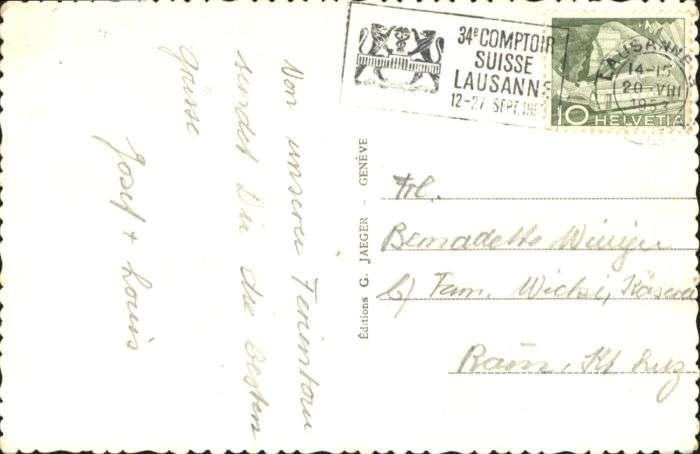 Von unserer Ferientour
sendet Dir die besten
Grüsse
Josef + Louis
Éditions G. JAEGER - GENÈVE
34e COMPTOIR
SUISSE
LAUSANNE
12-27 SEPT.
LAUSANNE
14-15
20-VIII
1953
10 HELVETIA
Frl.
Bernadette
b/ Fam. Käserei
Rain, Kt Luz